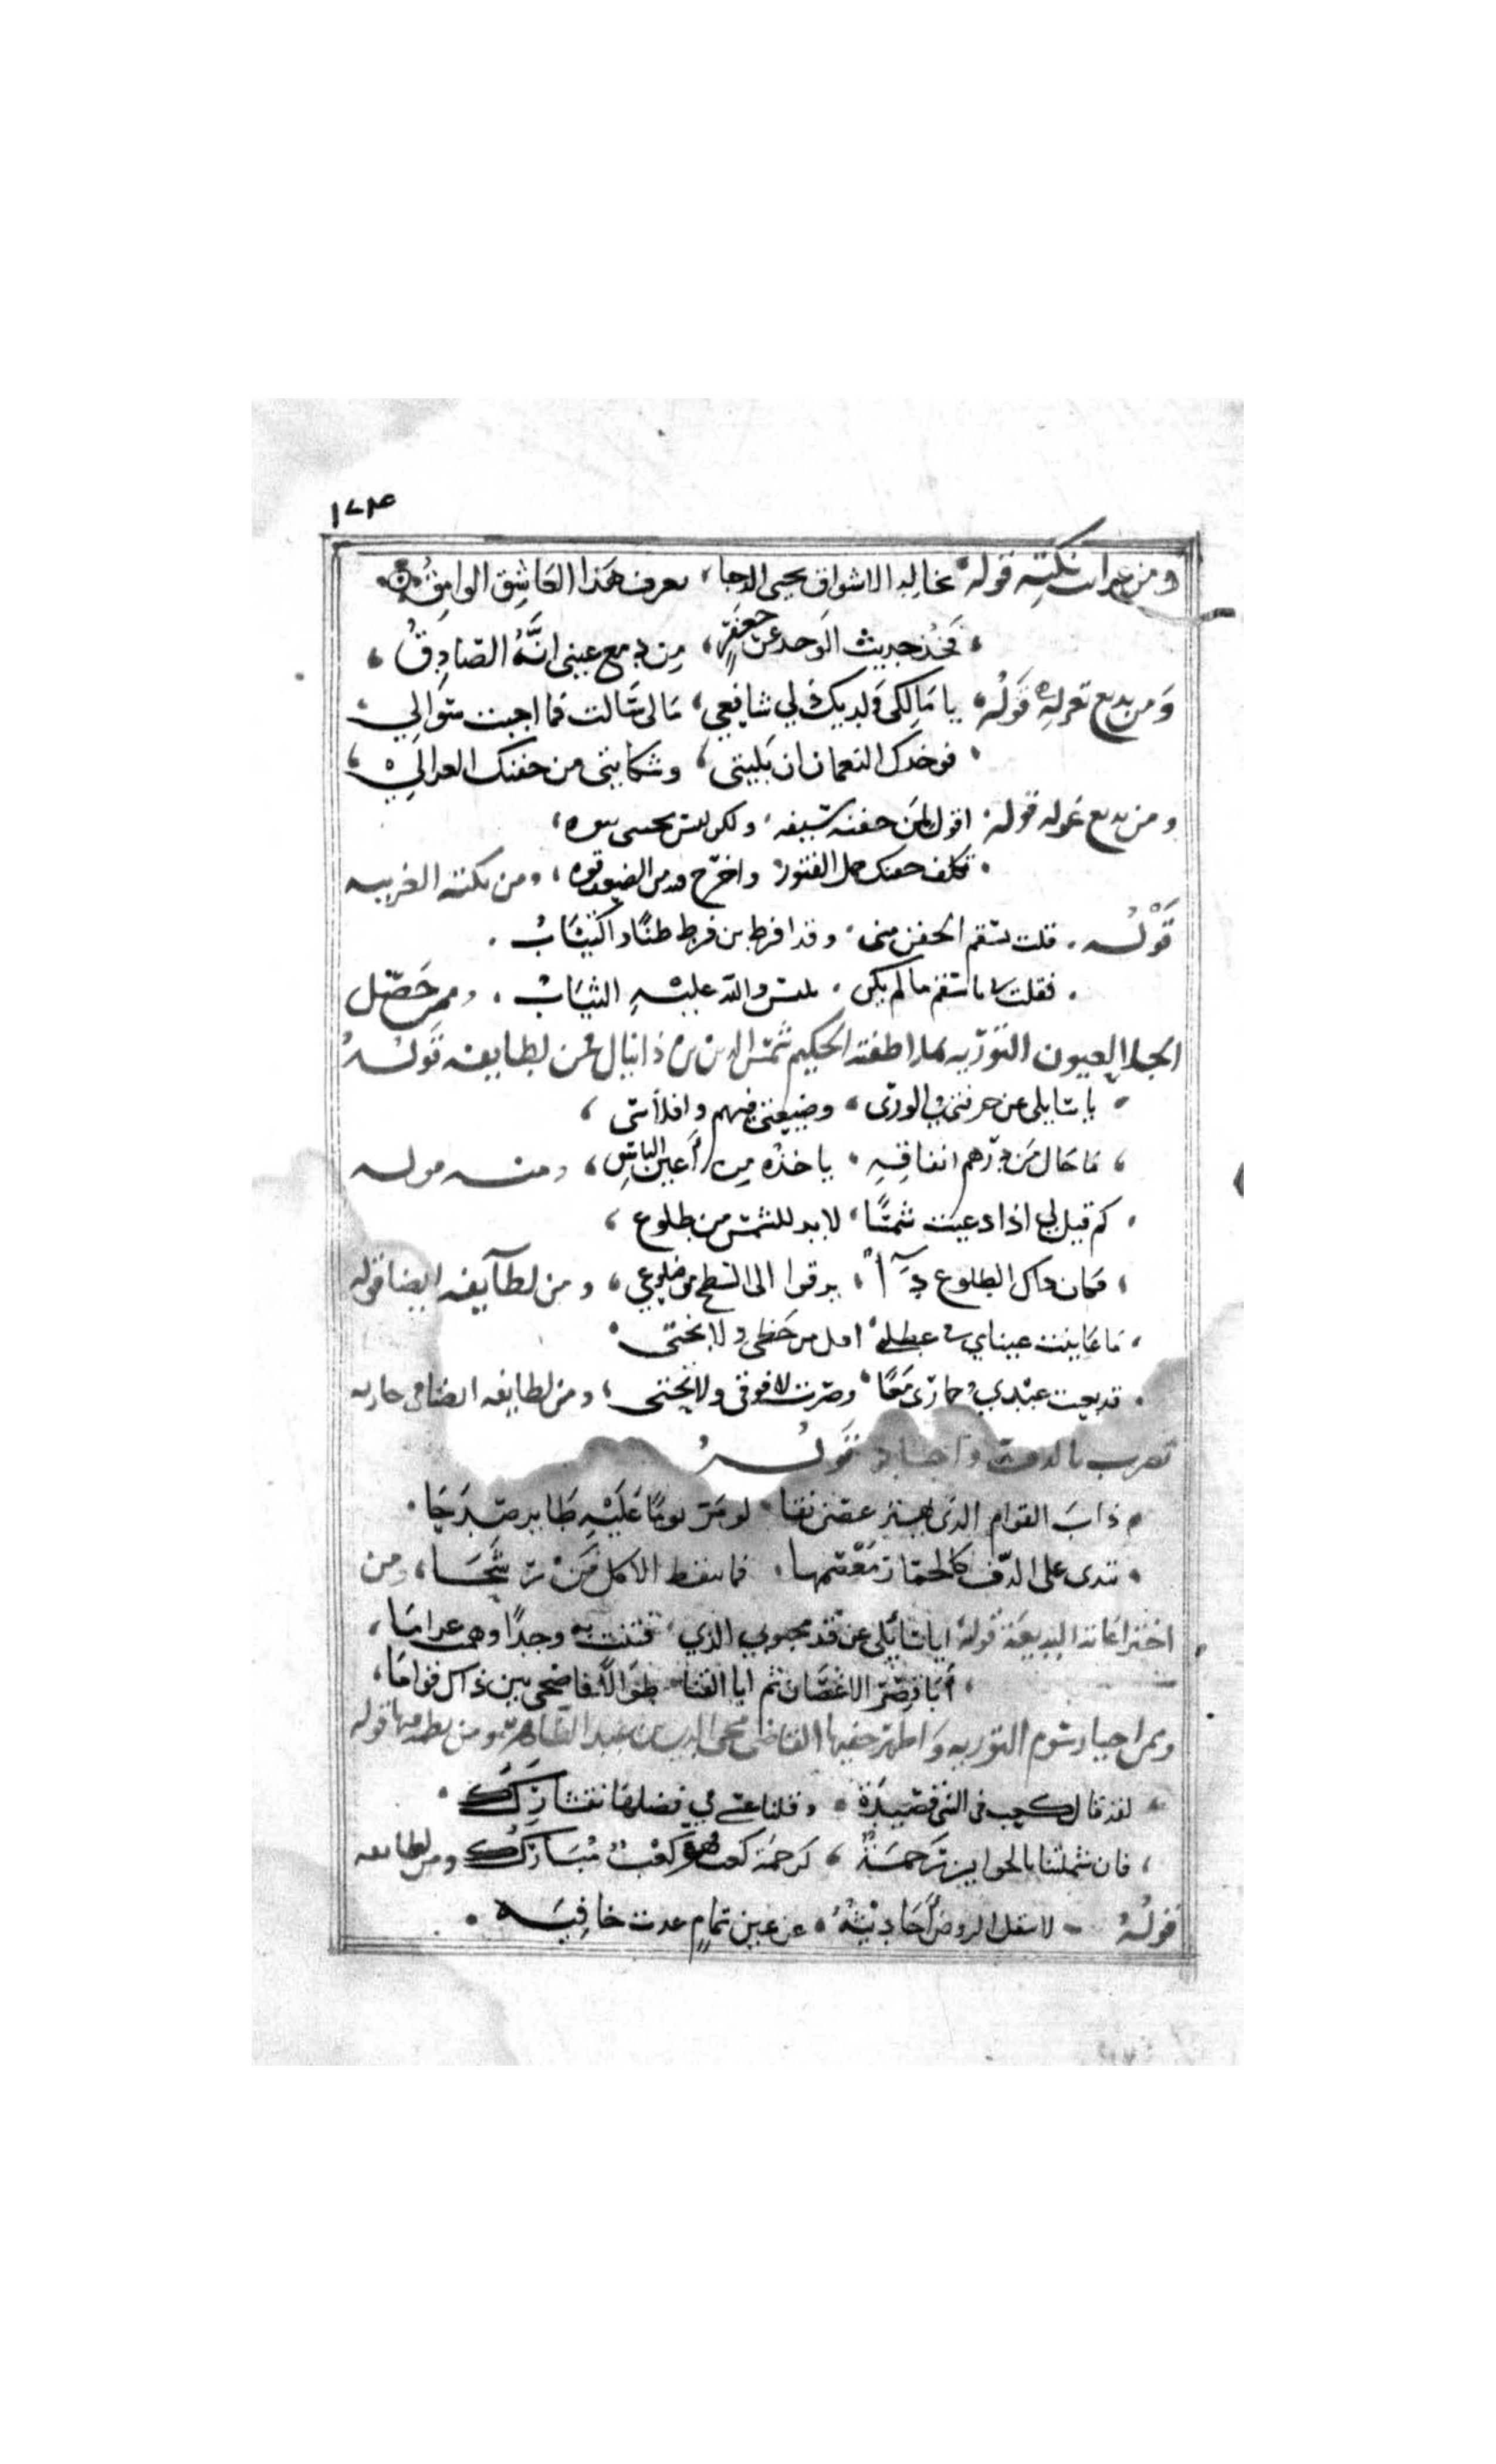 ١٧٤
ومن غرايب نكته قوله بخالد الاشواق يحيى الدجا يعرف هذا العاشق الوامق
فخذ حديث الوجد عن جعفر من دمع عيني انه الصادق
ومن بديع تغزله قوله يا مالكي ولديك ذلي شافعي مالي سالت فما اجبت سوالي
فوخدك النعمان ان بليتي وشكايتي من جفنك الغزالي
ومن بديع غزله قوله اقول لمن جفنه سيفه ولكن ليس يخشى نبوه
تكلف جفنك حمل الفتور واخرج من الضعف قوه ومن نكته الغريبه
قوله قلت لسقم الجفن مني وقد افرط بي فرط ضنا واكتئاب
فقلت يا سقم ما لم يكن يلبس والله عليه الثياب وممن حصل
الجلا لعيون التوريه الحكيم شمس الدين بن دانيال فمن لطايفه قوله
يا سايلي عن حرفتي في الورى وضيعتي فيهم وافلاسي
ما حال من درهم انفاقه ياخذه من اعين الناس ومنه قوله
كم قيل لي اذا دعيت شمسا لابد للشمس من طلوع
فكان ذاك الطلوع داآ يرقوا الى السطح من ضلوعي ومن لطايفه ايضا قوله
ما عاينت عيناي في عطلة اقل من حظي ولا بختي
قد بعت عبدي وحماري معا وصرت لا فوقي ولا تحتي ومن لطايفه ايضا في جاريه
تضرب بالدف واجاد قوله
ذات القوام الذي يهتز غصن نقا لو مر يوما عليه طاير صدحا
تبدي على الدف كالجمار معصمها الا كل من رشحا ومن
اختراعاته البديعة قوله ايا سائلي عن قد محبوبي الذي فتنت به وجدا وهمت غراما
ابا قصر الاغصان ثم ابا القنا طوالا فاضحى بين ذاك قواما
وممن احيا رسوم التوريه واظهر خفيها القاضي محيي الدين بن عبد الظاهر ومن قوله
لقد قال كعب في النبي قصيدة وقلنا عسى في فضلها نتشارك
فان شملتنا بالجوايز رحمة كرحمة كعب فهو كعب مبارك ومن لطايفه
قوله لا تنقل الروض احاديثه عن عين تمام غدت خافيه